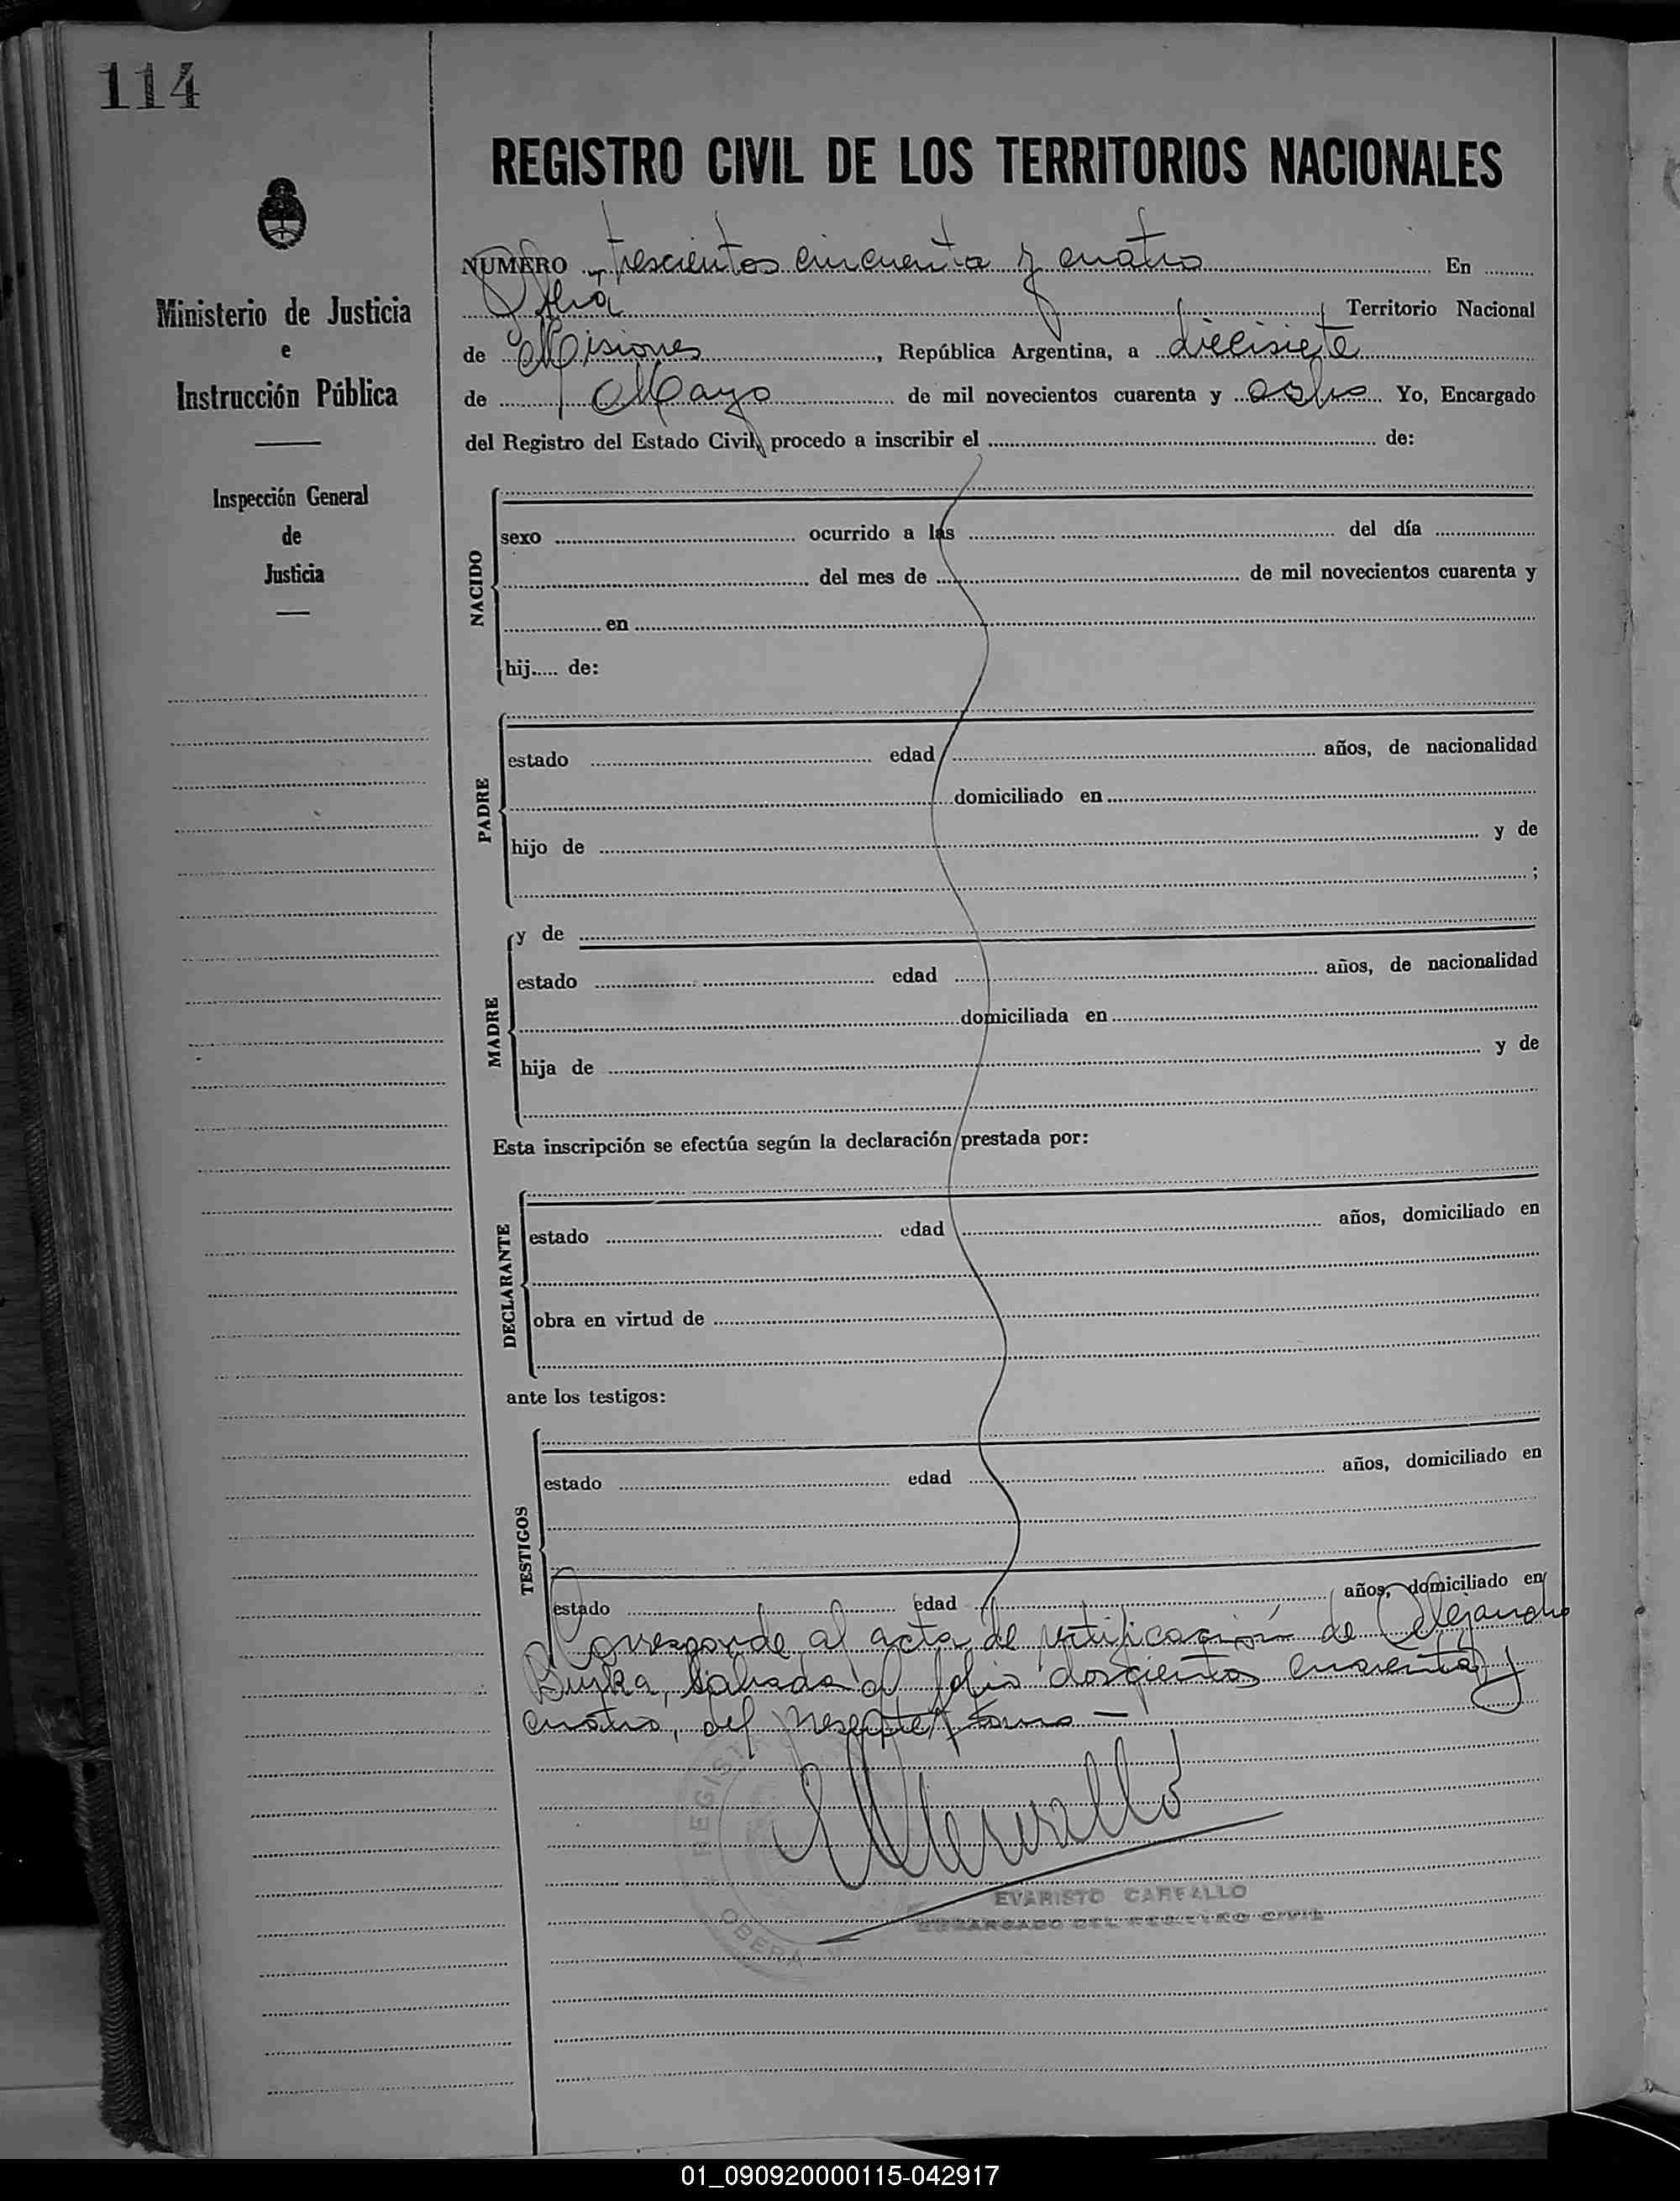 114
REGISTRO CIVIL DE LOS TERRITORIOS NACIONALES
Ministerio de Justicia
e
Instrucción Pública
Inspección General
de
Justicia
NUMERO trescientos cincuenta y cuatro En
Oberá Territorio Nacional
de Misiones, República Argentina, a diecisiete
de Mayo de mil novecientos cuarenta y ocho Yo, Encargado
del Registro del Estado Civil, procedo a inscribir el de:
NACIDO
sexo ocurrido a las del día
del mes de de mil novecientos cuarenta y
en
hij..... de:
PADRE
estado edad años, de nacionalidad
domiciliado en
hijo de y de
;
MADRE
y de
estado edad años, de nacionalidad
domiciliada en
hija de y de
Esta inscripción se efectúa según la declaración prestada por:
DECLARANTE
estado edad años, domiciliado en
obra en virtud de
ante los testigos:
TESTIGOS
estado edad años, domiciliado en
estado edad años, domiciliado en
Corresponde al acta de de Alejandro
labrada al folio doscientos cuarenta y
cuatro, del presente tomo —
REGIST
OBERA
EVARISTO CARVALLO
ENCARGADO DEL REGISTRO CIVIL
01_090920000115-042917